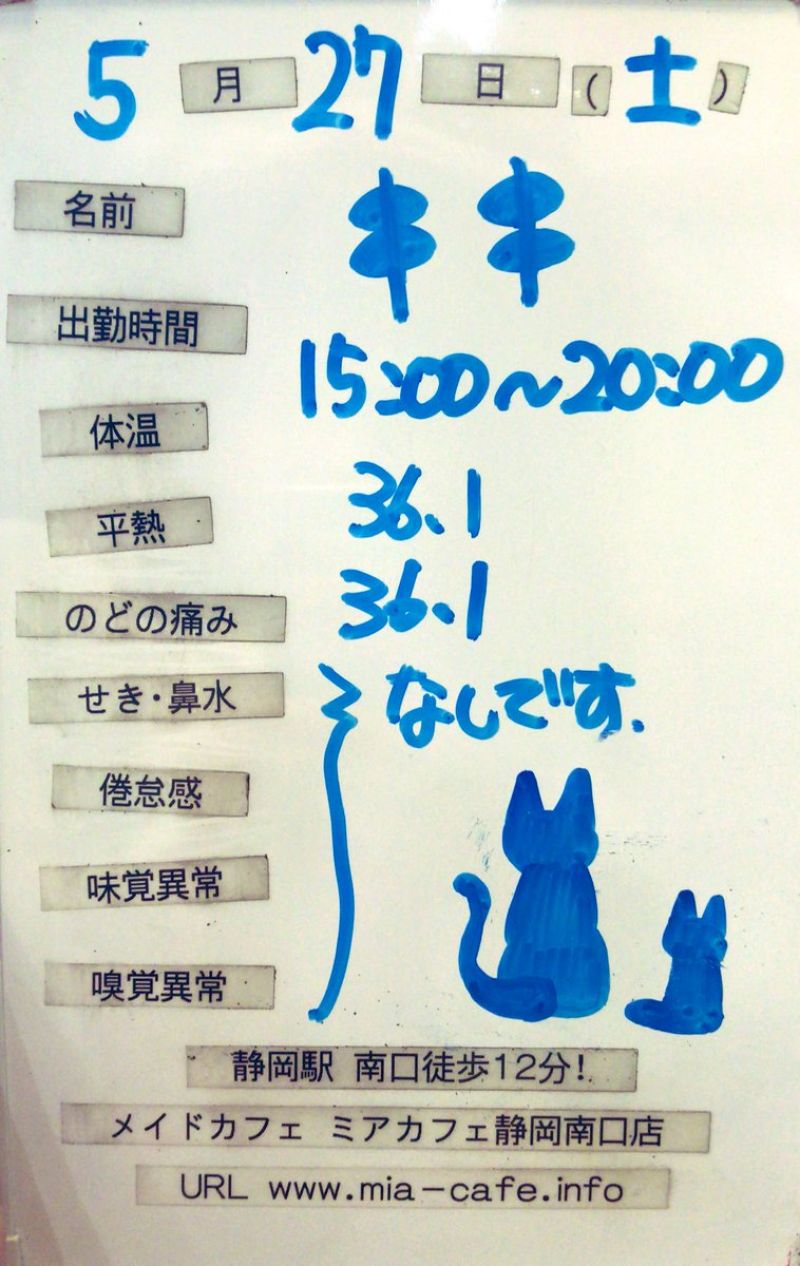 5月27日(土)
名前 串串
出勤時間 15:00~20:00
体温 36.1
平熱 36.1
のどの痛み
せき・鼻水 なしです.
倦怠感
味覚異常
嗅覚異常
静岡駅 南口徒歩12分!
メイドカフェ ミアカフェ静岡南口店
URL www.mia-cafe.info